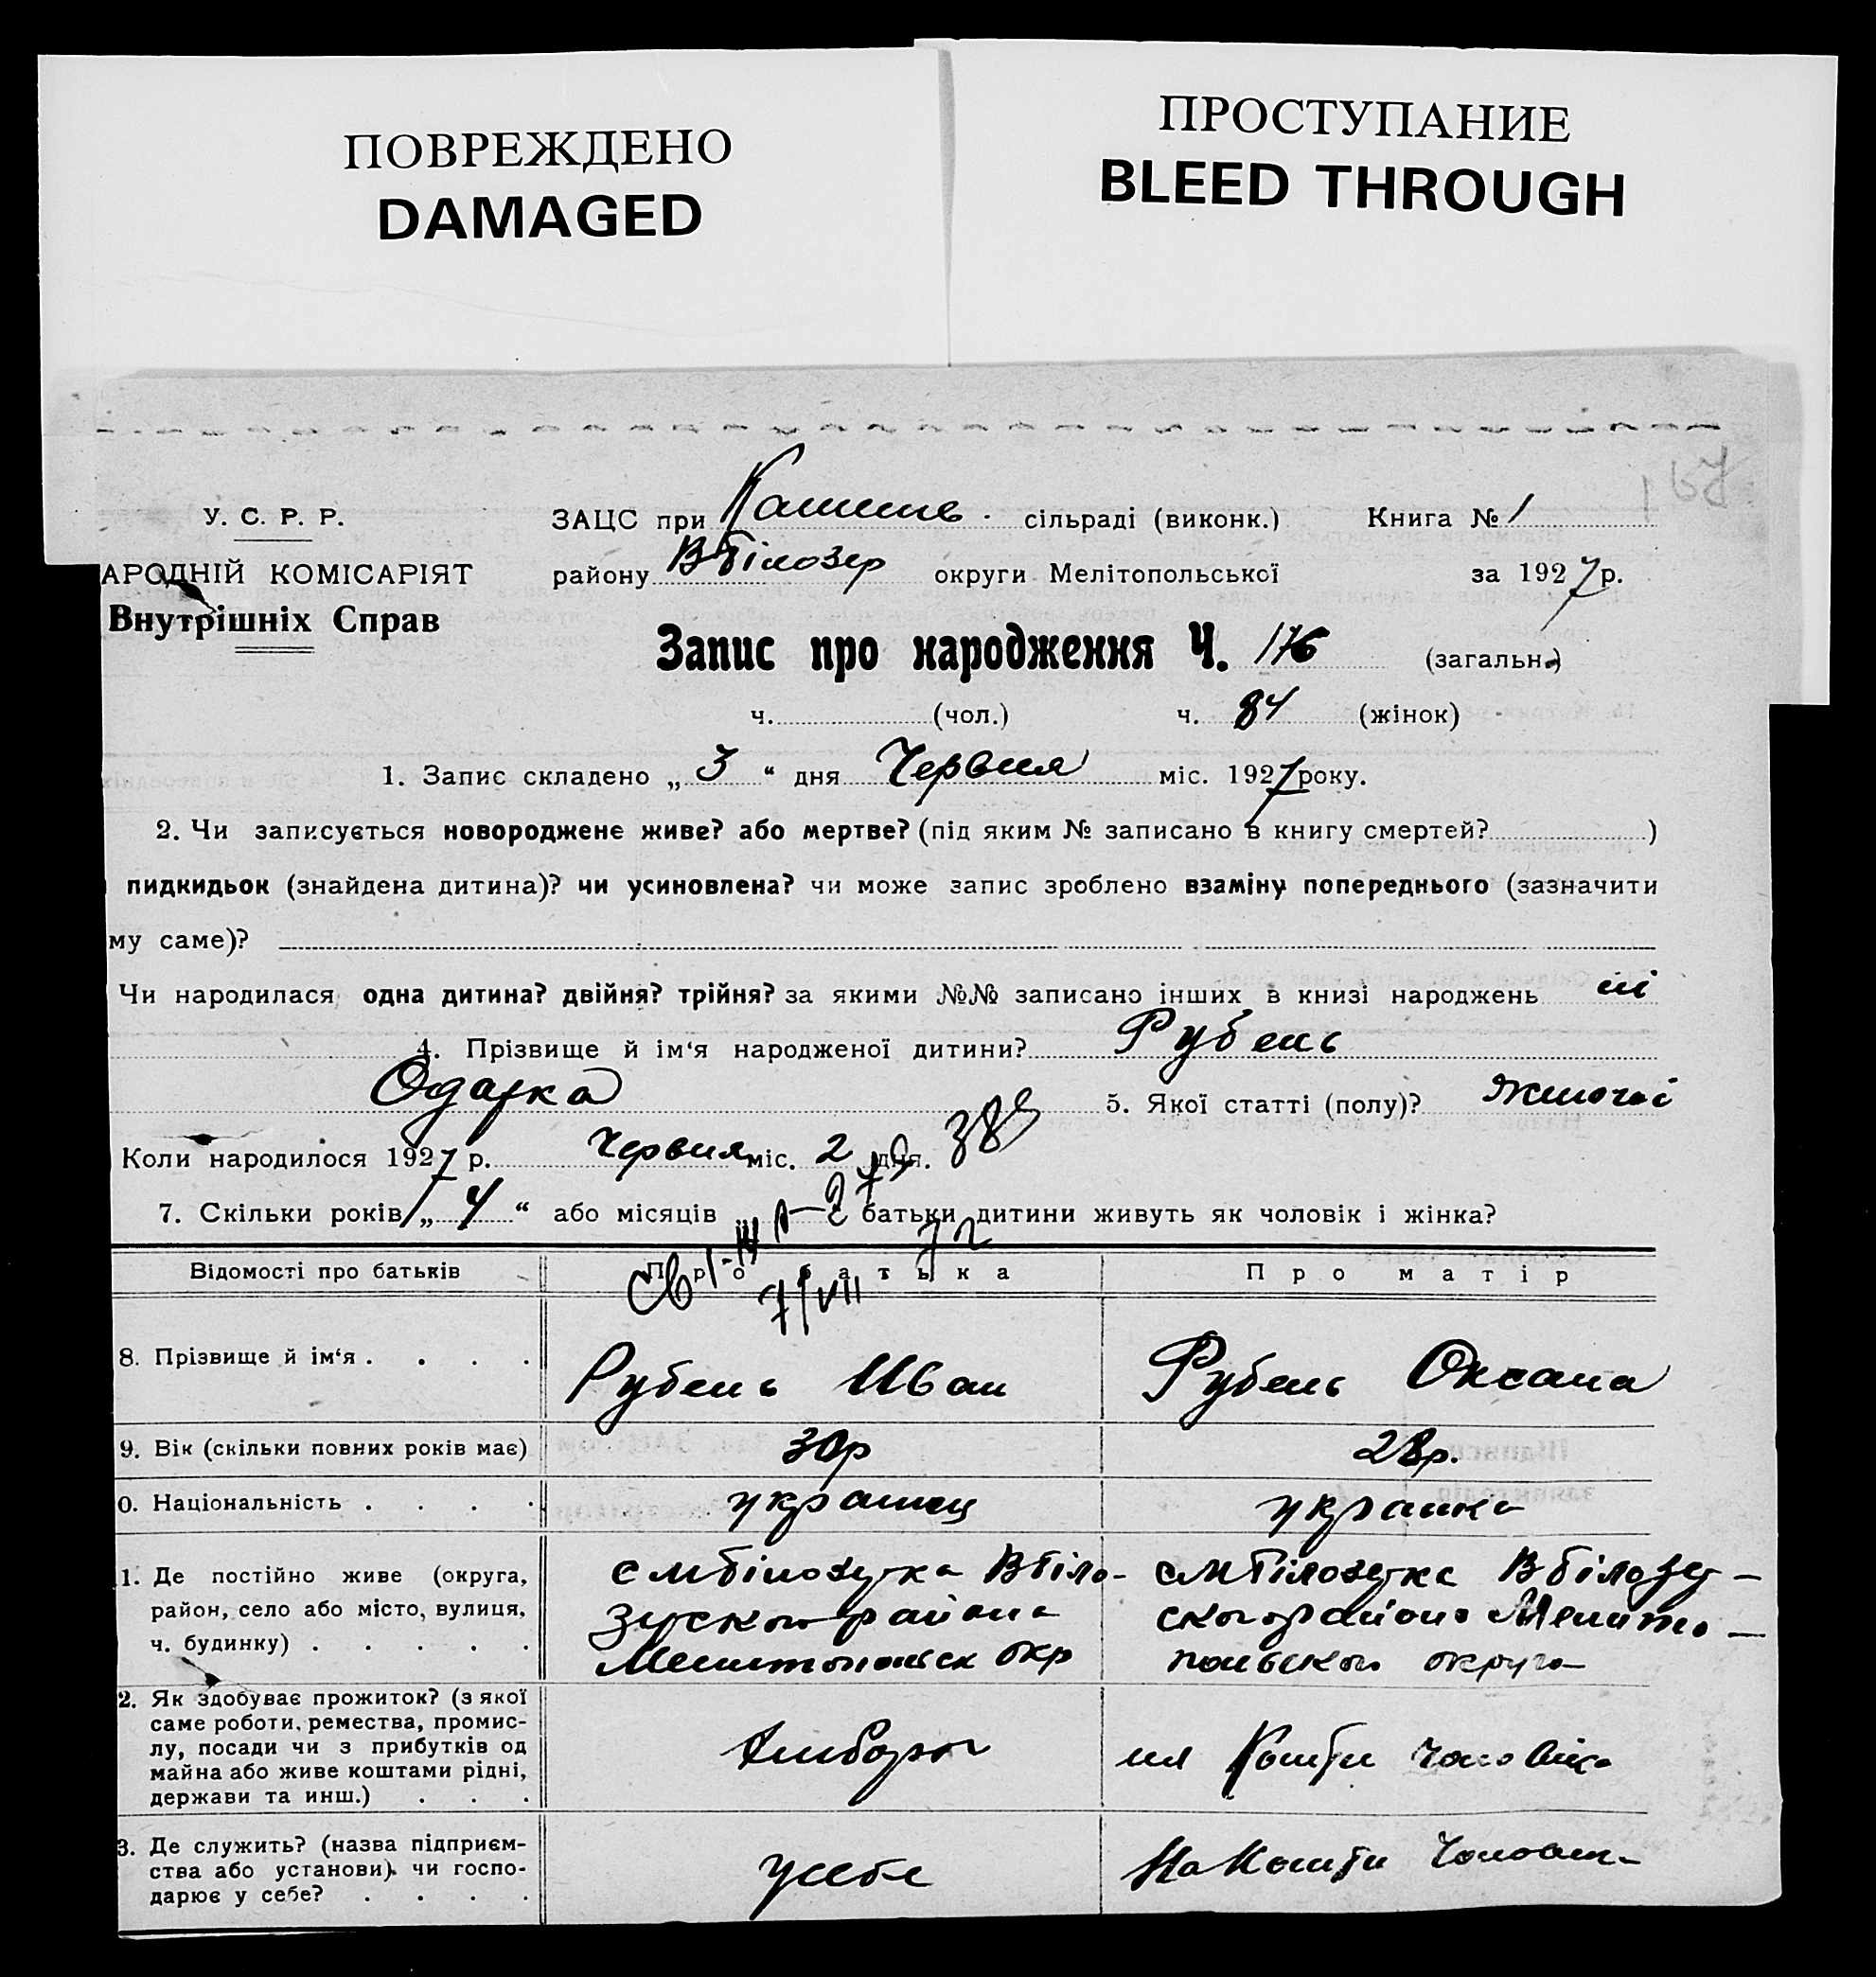 ПОВРЕЖДЕНО
DAMAGED
ПРОСТУПАНИЕ
BLEED THROUGH
У. С. Р. Р.
АРОДНІЙ КОМІСАРІЯТ
Внутрішніх Справ
ЗАЦС при сільраді (виконк.) Книга № 1
району В Білозер округи Мелітопольської за 1927 р.
Запис про народження Ч. 176 (загальн.)
ч. (чол.) ч. 84 (жінок)
1. Запис складено „ 3 “ дня Червня міс. 1927 року.
2. Чи записується новороджене живе? або мертве? (під яким № записано в книгу смертей? )
пидкидьок (знайдена дитина)? чи усиновлена? чи може запис зроблено взаміну попереднього (зазначити
му саме)?
Чи народилася одна дитина? двійня? трійня? за якими №№ записано інших в книзі народжень ні
4. Прізвище й ім‘я народженої дитини? Рубень
Одарка 5. Якої статті (полу)? жіночої
Коли народилося 1927 р. Червня міс. 2 дня.
7. Скільки років „ 4 “ або місяців „ батьки дитини живуть як чоловік і жінка?
Відомості про батьків Про батька Про матір
8. Прізвище й ім‘я . . . . Рубень Иван Рубень Оксана
9. Вік (скільки повних років має) 30р 28р.
0. Національність . . . . украинец украинка
1. Де постійно живе (округа,
район, село або місто, вулиця,
ч. будинку) . . . . .
с мБілозерка ВБіло-
зерского района
Мелитопольск окр
с мБілозерка В білозер-
ского району Мелито-
польской округа
2. Як здобуває прожиток? (з якої
саме роботи, ремества, промис-
лу, посади чи з прибутків од
майна або живе коштами рідні,
держави та инш.) . . .
Хлибороб
на Кошти чоловіка
3. Де служить? (назва підприєм-
ства або установи). чи госпо-
дарює у себе? . . . .
у себе
На Кошти Чоловіка